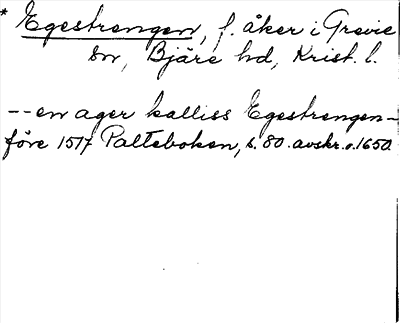 * Egestrengen, f. åker i Grevie
sn, Bjäre hd, Krist. l.
-- en ager kalliss Egestrengen --
före 1517 Palteboken, s. 80. avskr. o. 1650.